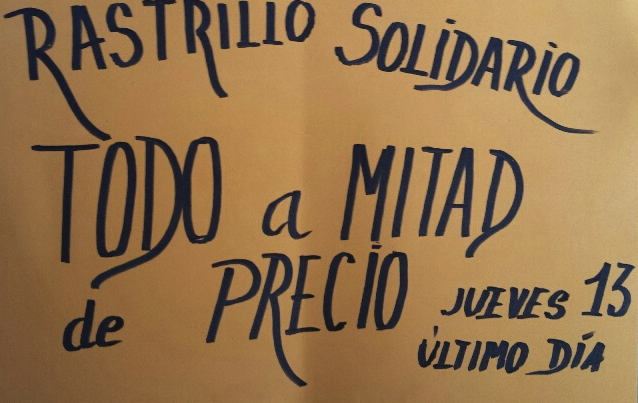 RASTRILLO SOLIDARIO
TODO a MITAD
de PRECIO
JUEVES 13
ÚLTIMO DÍA